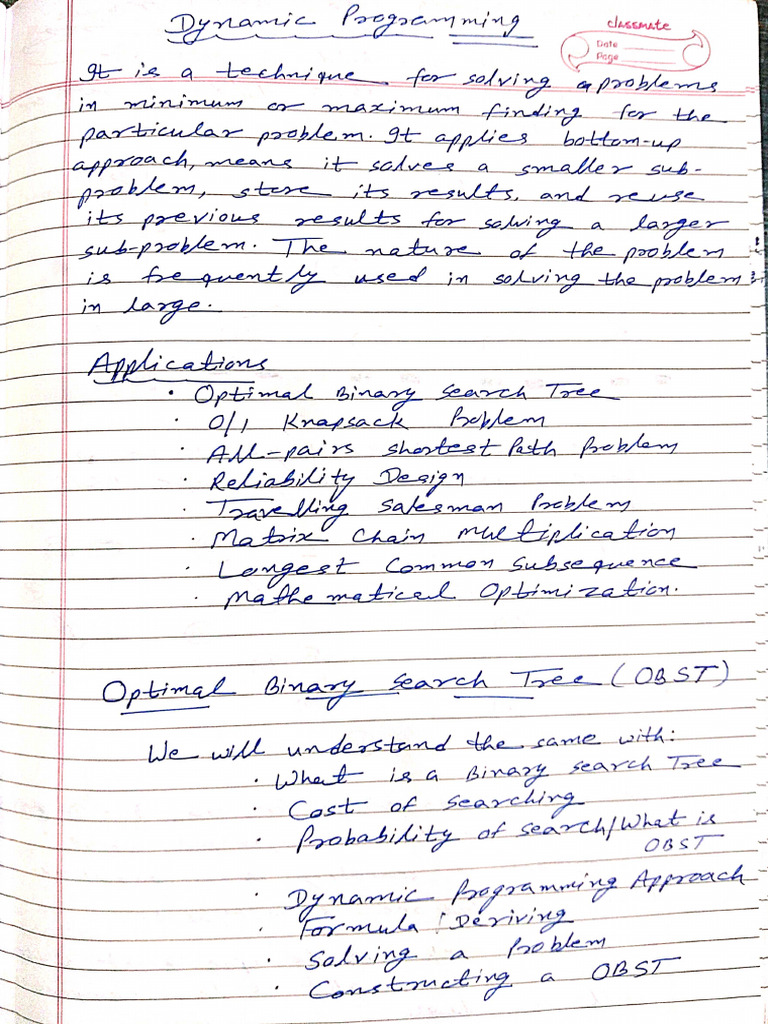 Dynamic Programming
classmate
Date
Page
It is a technique for solving a problems
in minimum or maximum finding for the
particular problem. It applies bottom-up
approach, means it solves a smaller sub-
problem, store its results, and reuse
its previous results for solving a larger
sub-problem. The nature of the problem
is frequently used in solving the problem
in large.
Applications
· Optimal Binary Search Tree
· 0/1 Knapsack Problem
· All-pairs shortest Path Problem
· Reliability Design
· Travelling Salesman Problem
· Matrix Chain Multiplication
· Longest Common Subsequence
· Mathematical Optimization.
Optimal Binary Search Tree (OBST)
We will understand the same with:
· What is a Binary Search Tree
· Cost of Searching
· Probability of search/What is
OBST
· Dynamic Programming Approach
· Formula Deriving
· Solving a Problem
· Constructing a OBST